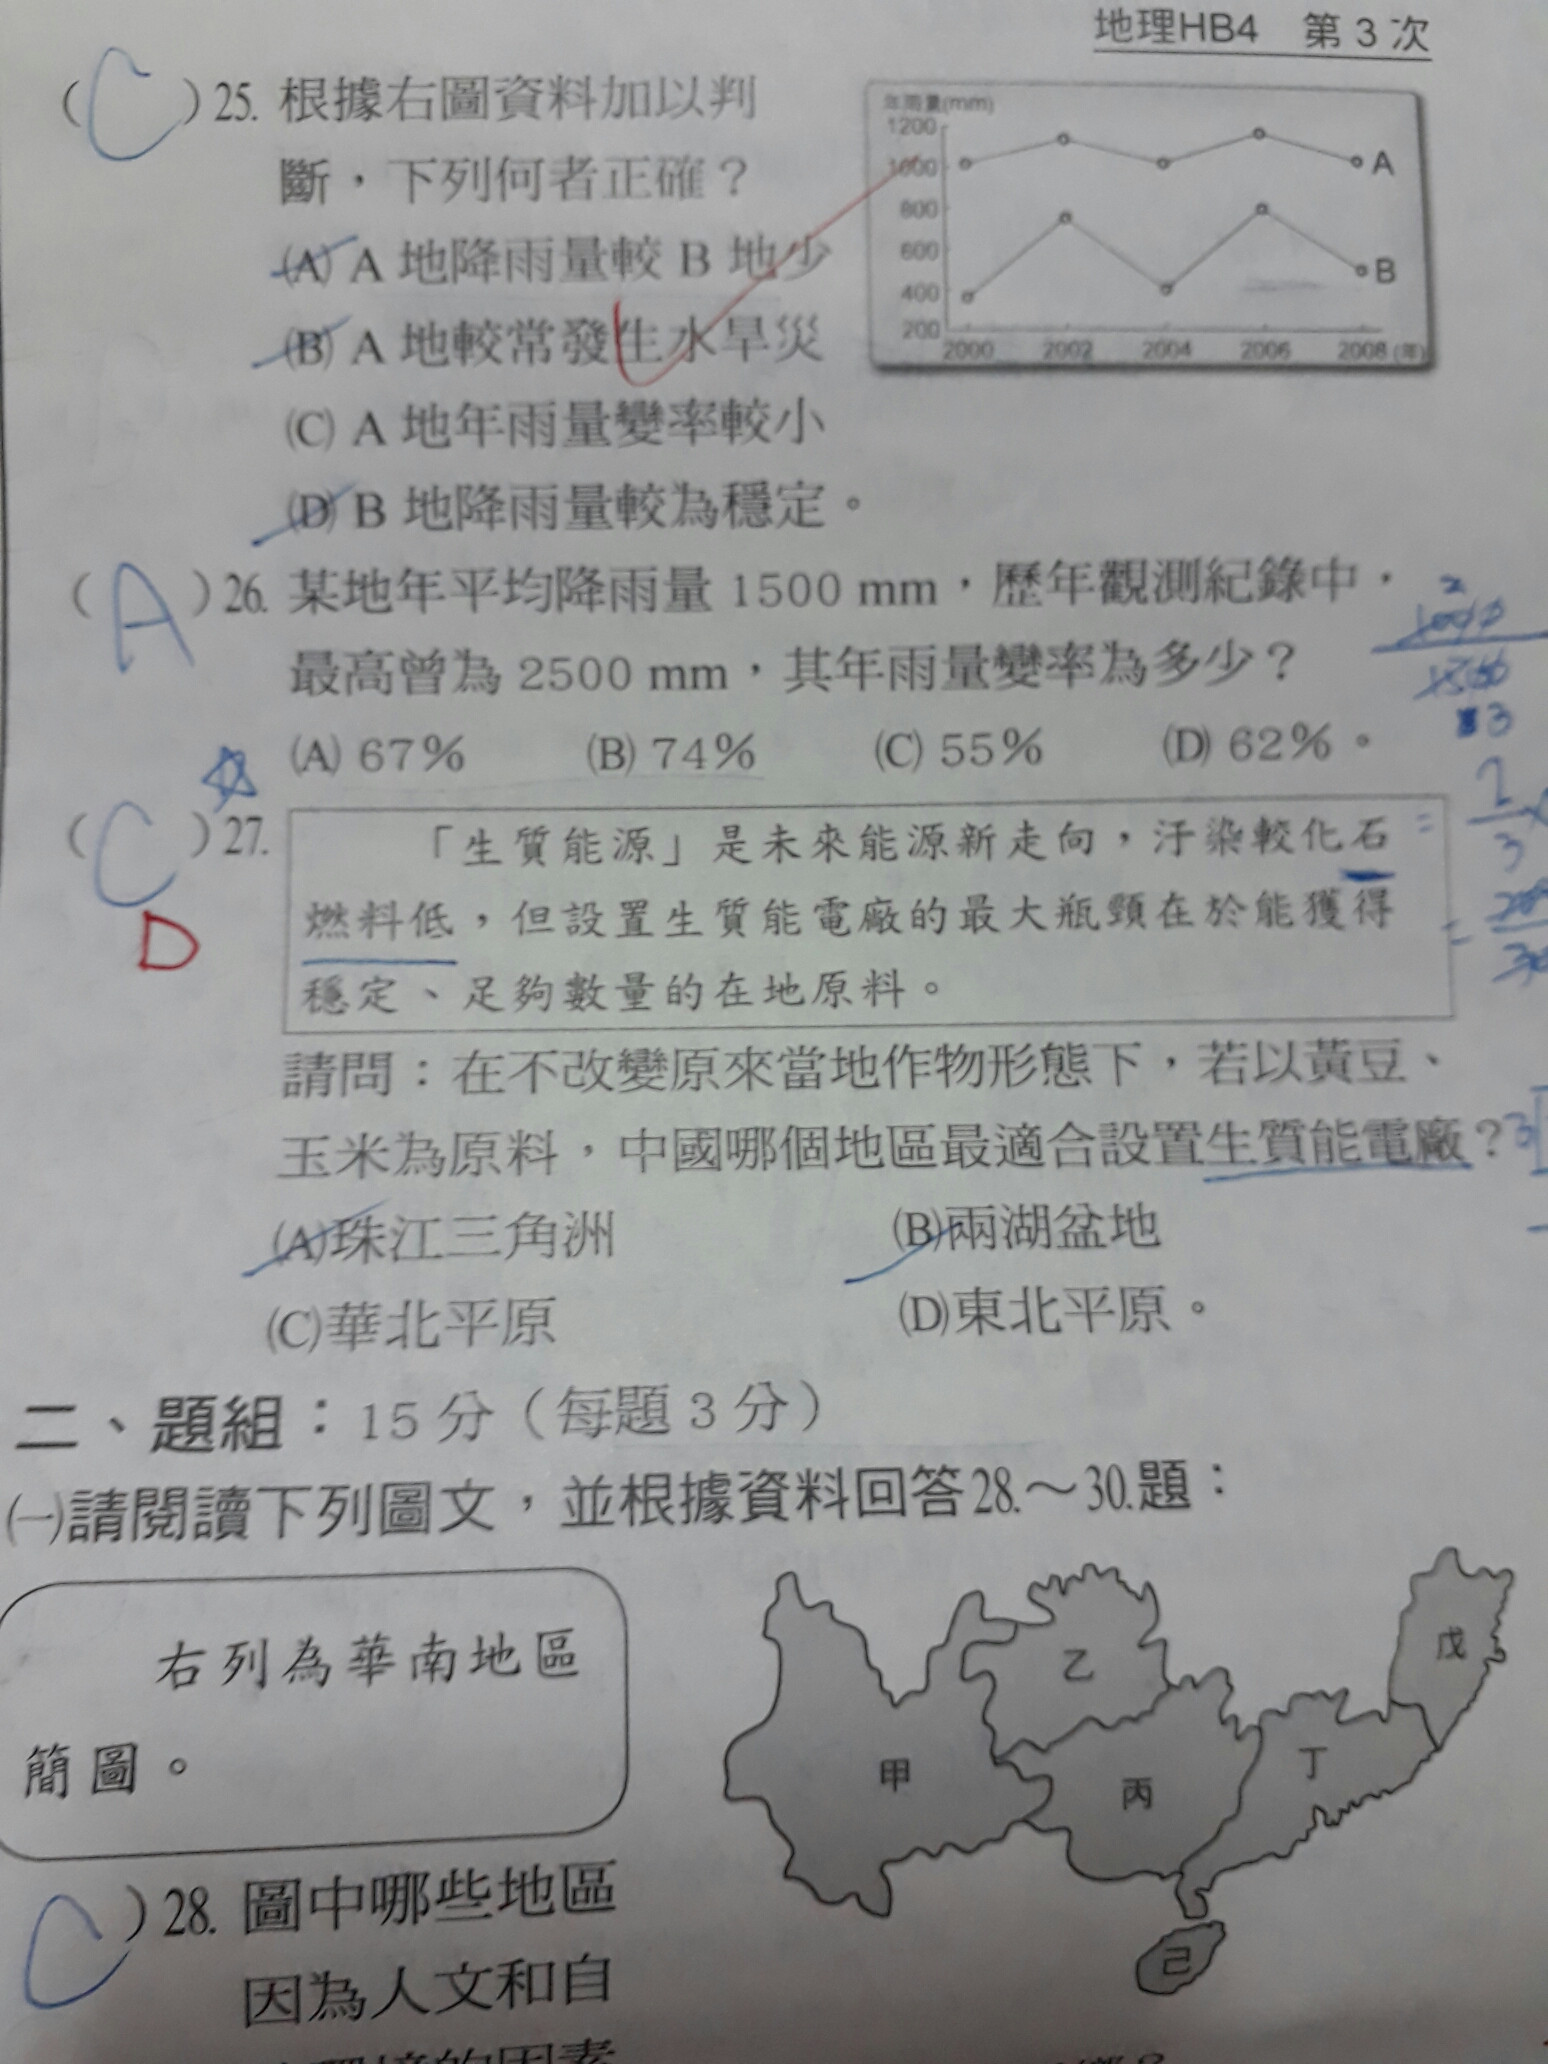 地理HB4 第3次
( C )25. 根據右圖資料加以判
斷，下列何者正確？
(A) A 地降雨量較 B 地少
(B) A 地較常發生水旱災
(C) A 地年雨量變率較小
(D) B 地降雨量較為穩定。
年雨量(mm)
1200
1000
800
600
400
200
A
B
2000 2002 2004 2006 2008 (年)
( A )26. 某地年平均降雨量 1500 mm，歷年觀測紀錄中，
最高曾為 2500 mm，其年雨量變率為多少？
(A) 67% (B) 74% (C) 55% (D) 62%。
2
3
= 2
3
=
( C )27.
D
「生質能源」是未來能源新走向，汙染較化石
燃料低，但設置生質能電廠的最大瓶頸在於能獲得
穩定、足夠數量的在地原料。
請問：在不改變原來當地作物形態下，若以黃豆、
玉米為原料，中國哪個地區最適合設置生質能電廠？
3
(A)珠江三角洲 (B)兩湖盆地
(C)華北平原 (D)東北平原。
二、題組：15分（每題3分）
㈠請閱讀下列圖文，並根據資料回答28.～30.題：
右列為華南地區
簡圖。
甲
乙
丙
丁
戊
己
C )28. 圖中哪些地區
因為人文和自